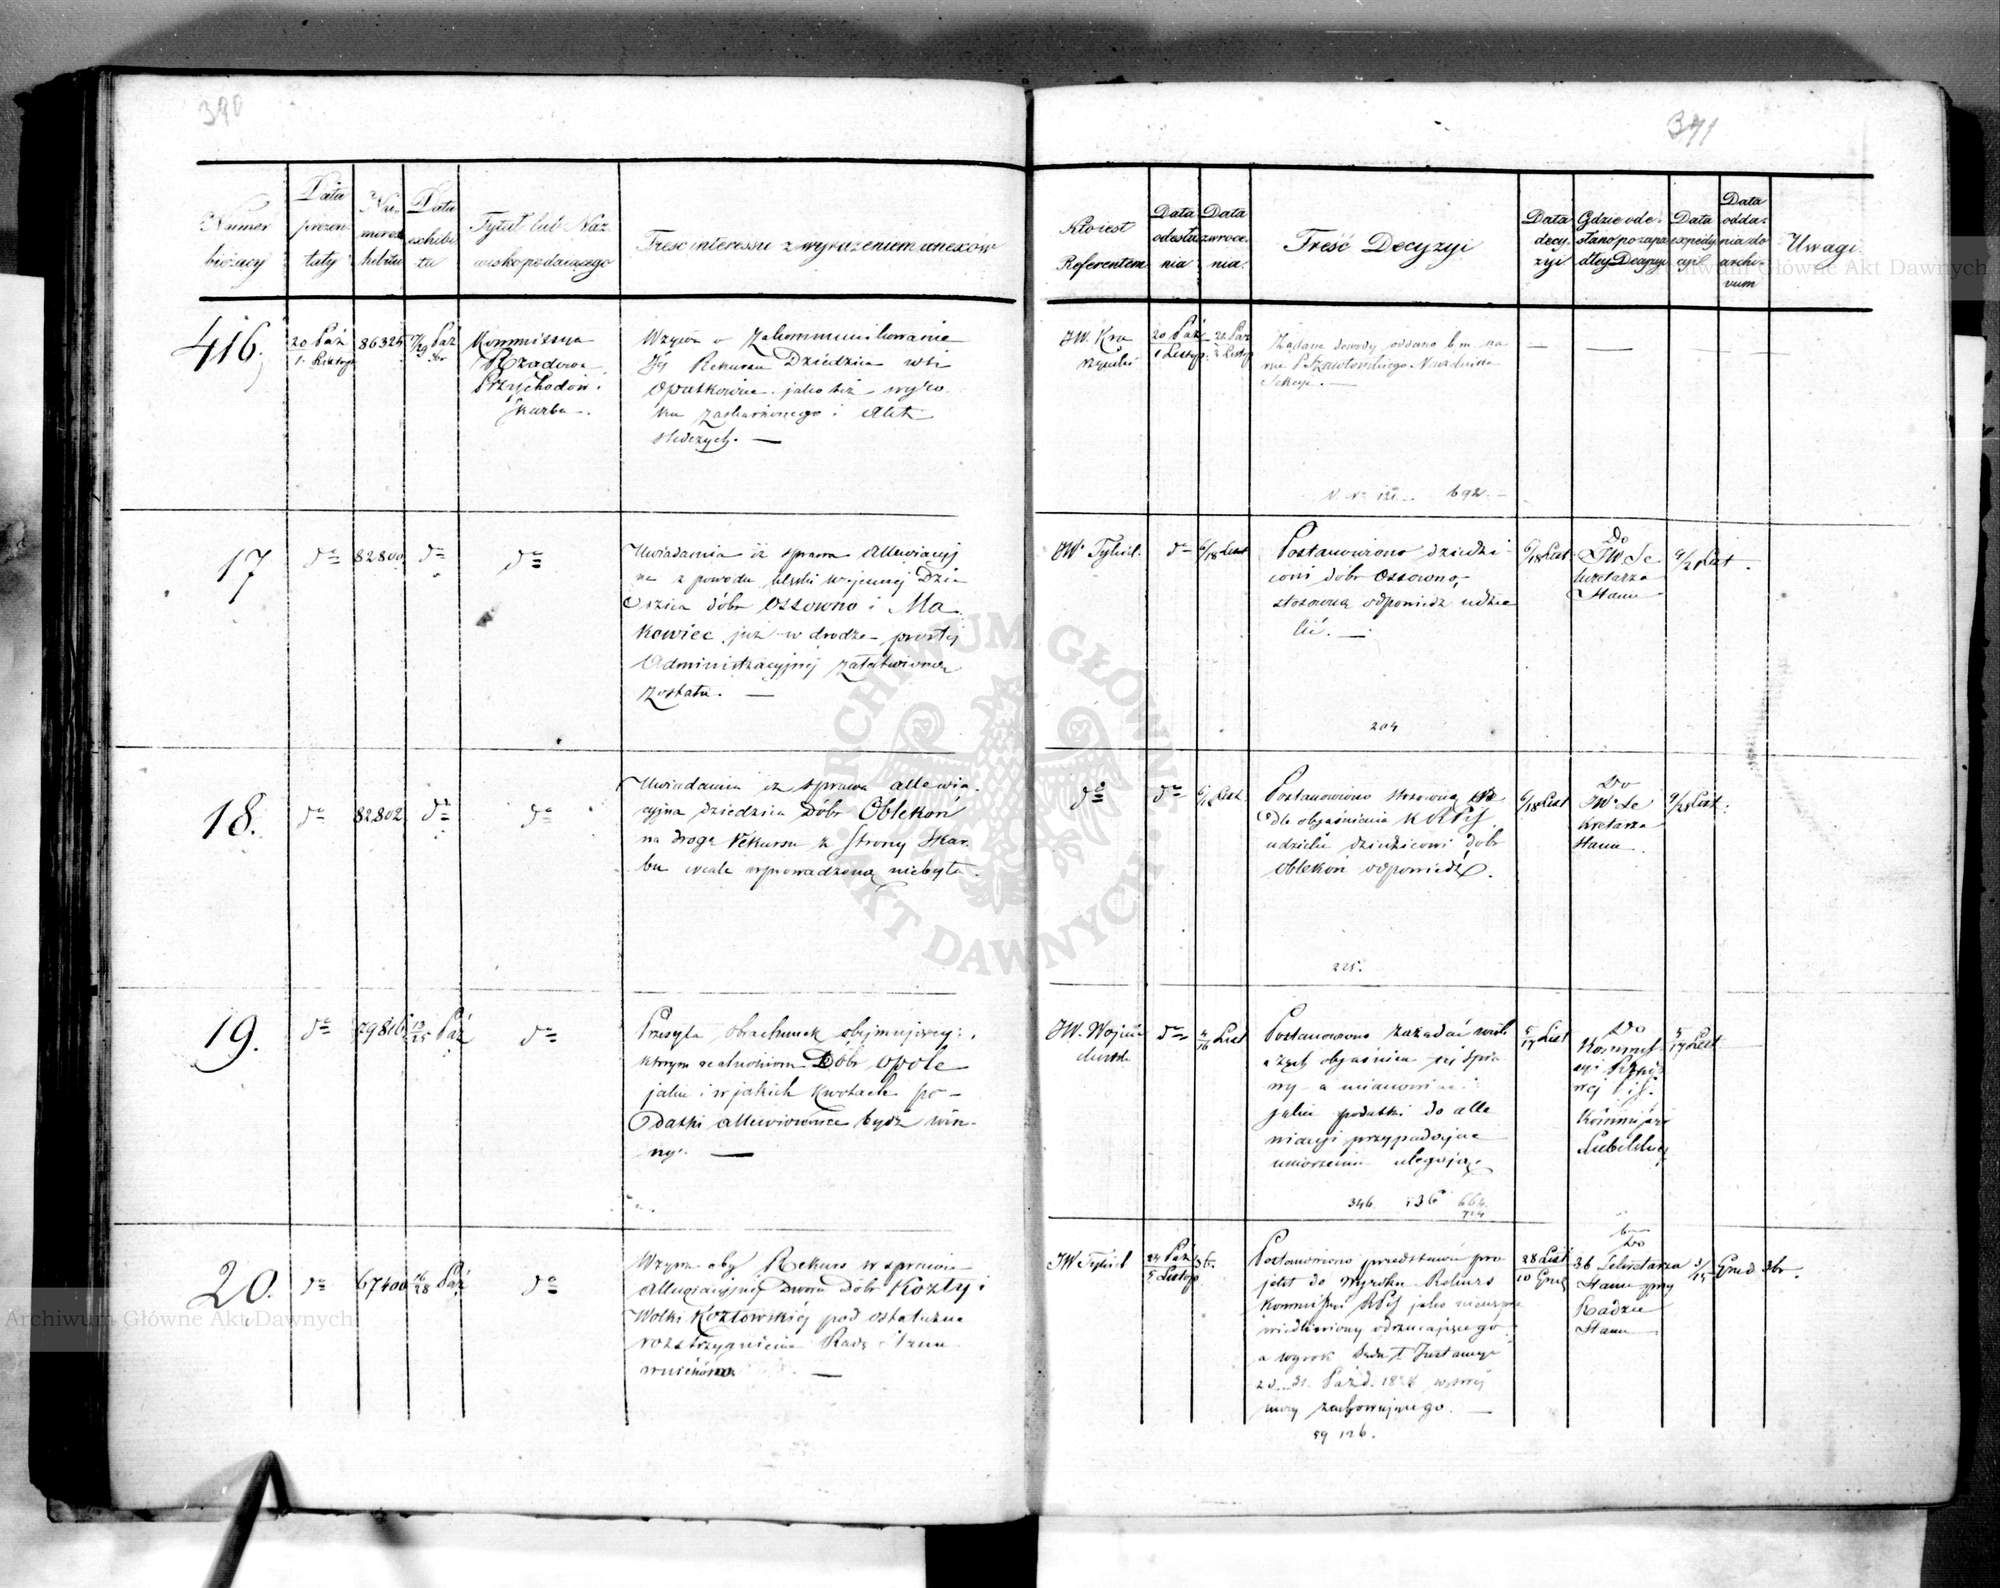 390
391
Numer bieżący
Data prezentaty
Numer exhibitu
Data exhibitu
Tytuł lub Nazwisko podaiącego
Treść interessu z wyrażeniem anexów
Kto iest Referentem
Data odesłania
Data zwrócenia.
Treść Decyzyi
Data decyzyi
Gdzie odesłano po zapadłey Decyzyi
Data expedycyi
Data oddania do archivum
Uwagi.
416.
20 Paź
1. Listop
Kommissya
Rządowa
Przychodów i
Skarbu.
Wzywa o Zakommunikowanie
Jéj Rekursu Dziedzica wsi
jako też wyro-
ku zaskarżonego i Akt
śledczych. —
JW. Kra
20 Paź
1 Listop.
Żądane dowody oddano
Sekcyi. —
692.
17
do
82800
do
do
Uwiadamia iż sprawa Allewiacyj
na z powodu klęski wojennéj Dzie
dzica dóbr Ossowno i Ma
kowiec już w drodze prostéj
Administracyjnéj załatwioną
została. —
JW. Tykiel
do
6/18 List
Postanowiono dziedzi-
cowi dóbr Ossowno,
stosowną odpowiedź udzie
lić. —
204
6/18 List
Do
JW Se
kretarza
Stanu
9/21 List.
18.
do
82802
do
do
Uwiadamia iż sprawa allewia-
cyjna dziedzica Dóbr Oblekoń
na drogę Rekursu ze Strony Skar-
bu wcale wprowadzoną niebyła.
do
do
6/18 List
Postanowiono stosowną
dle objaśnienia K R P i S
udzielić dziedzicowi dóbr
Oblekoń odpowiedź.
225.
6/18 List
Do
JW Se
kretarza
Stanu
List.
19.
do
79816
13/25 Paź
do
Przesyła obrachunek obejmujący
Dóbr Opole
jakie i w jakich kwotach po-
datki allewiowane bydź win-
ny. —
JW. Wojcie
chowski
do
4/16 List
Postanowiono zażądać
objaśnień téj spra
wy a mianowicie:
jakie podatki do alle
wiacyi przypadające
umorzeniu ulegają.
346. 736 664.
724
5/17 List
Do
Kommis
syi Rządo
wéj P i S.
i
Kommissyi
Lubelskiéj
5/17 List
20.
do
67400
16/28 Paź
do
Wzywa aby Rekurs w sprawie
Allewiacyjnéj Dworu dóbr Kozły i
Wolki Kozłowskiéj pod ostateczne
rozstrzygnięcie Rady Stanu
wniesiono —
JW Tykiel
24 Paź
5 Listop
Postanowiono przedstawić pro
jekt do Wyroku Rekurs
Kommissyi RPiS jako niespra
wiedliwiony odrzucającego
a wyrok Sądu I Instancyi
Paźd. w swéj
mocy zachowującego. —
59 126.
28 List
10 Grud
Do
Sekretarza
Stanu przy
Radzie
Stanu
3/15 Grud
Archiwum Główne Akt Dawnych
Archiwum Główne Akt Dawnych
ARCHIWUM GŁÓWNE AKT DAWNYCH